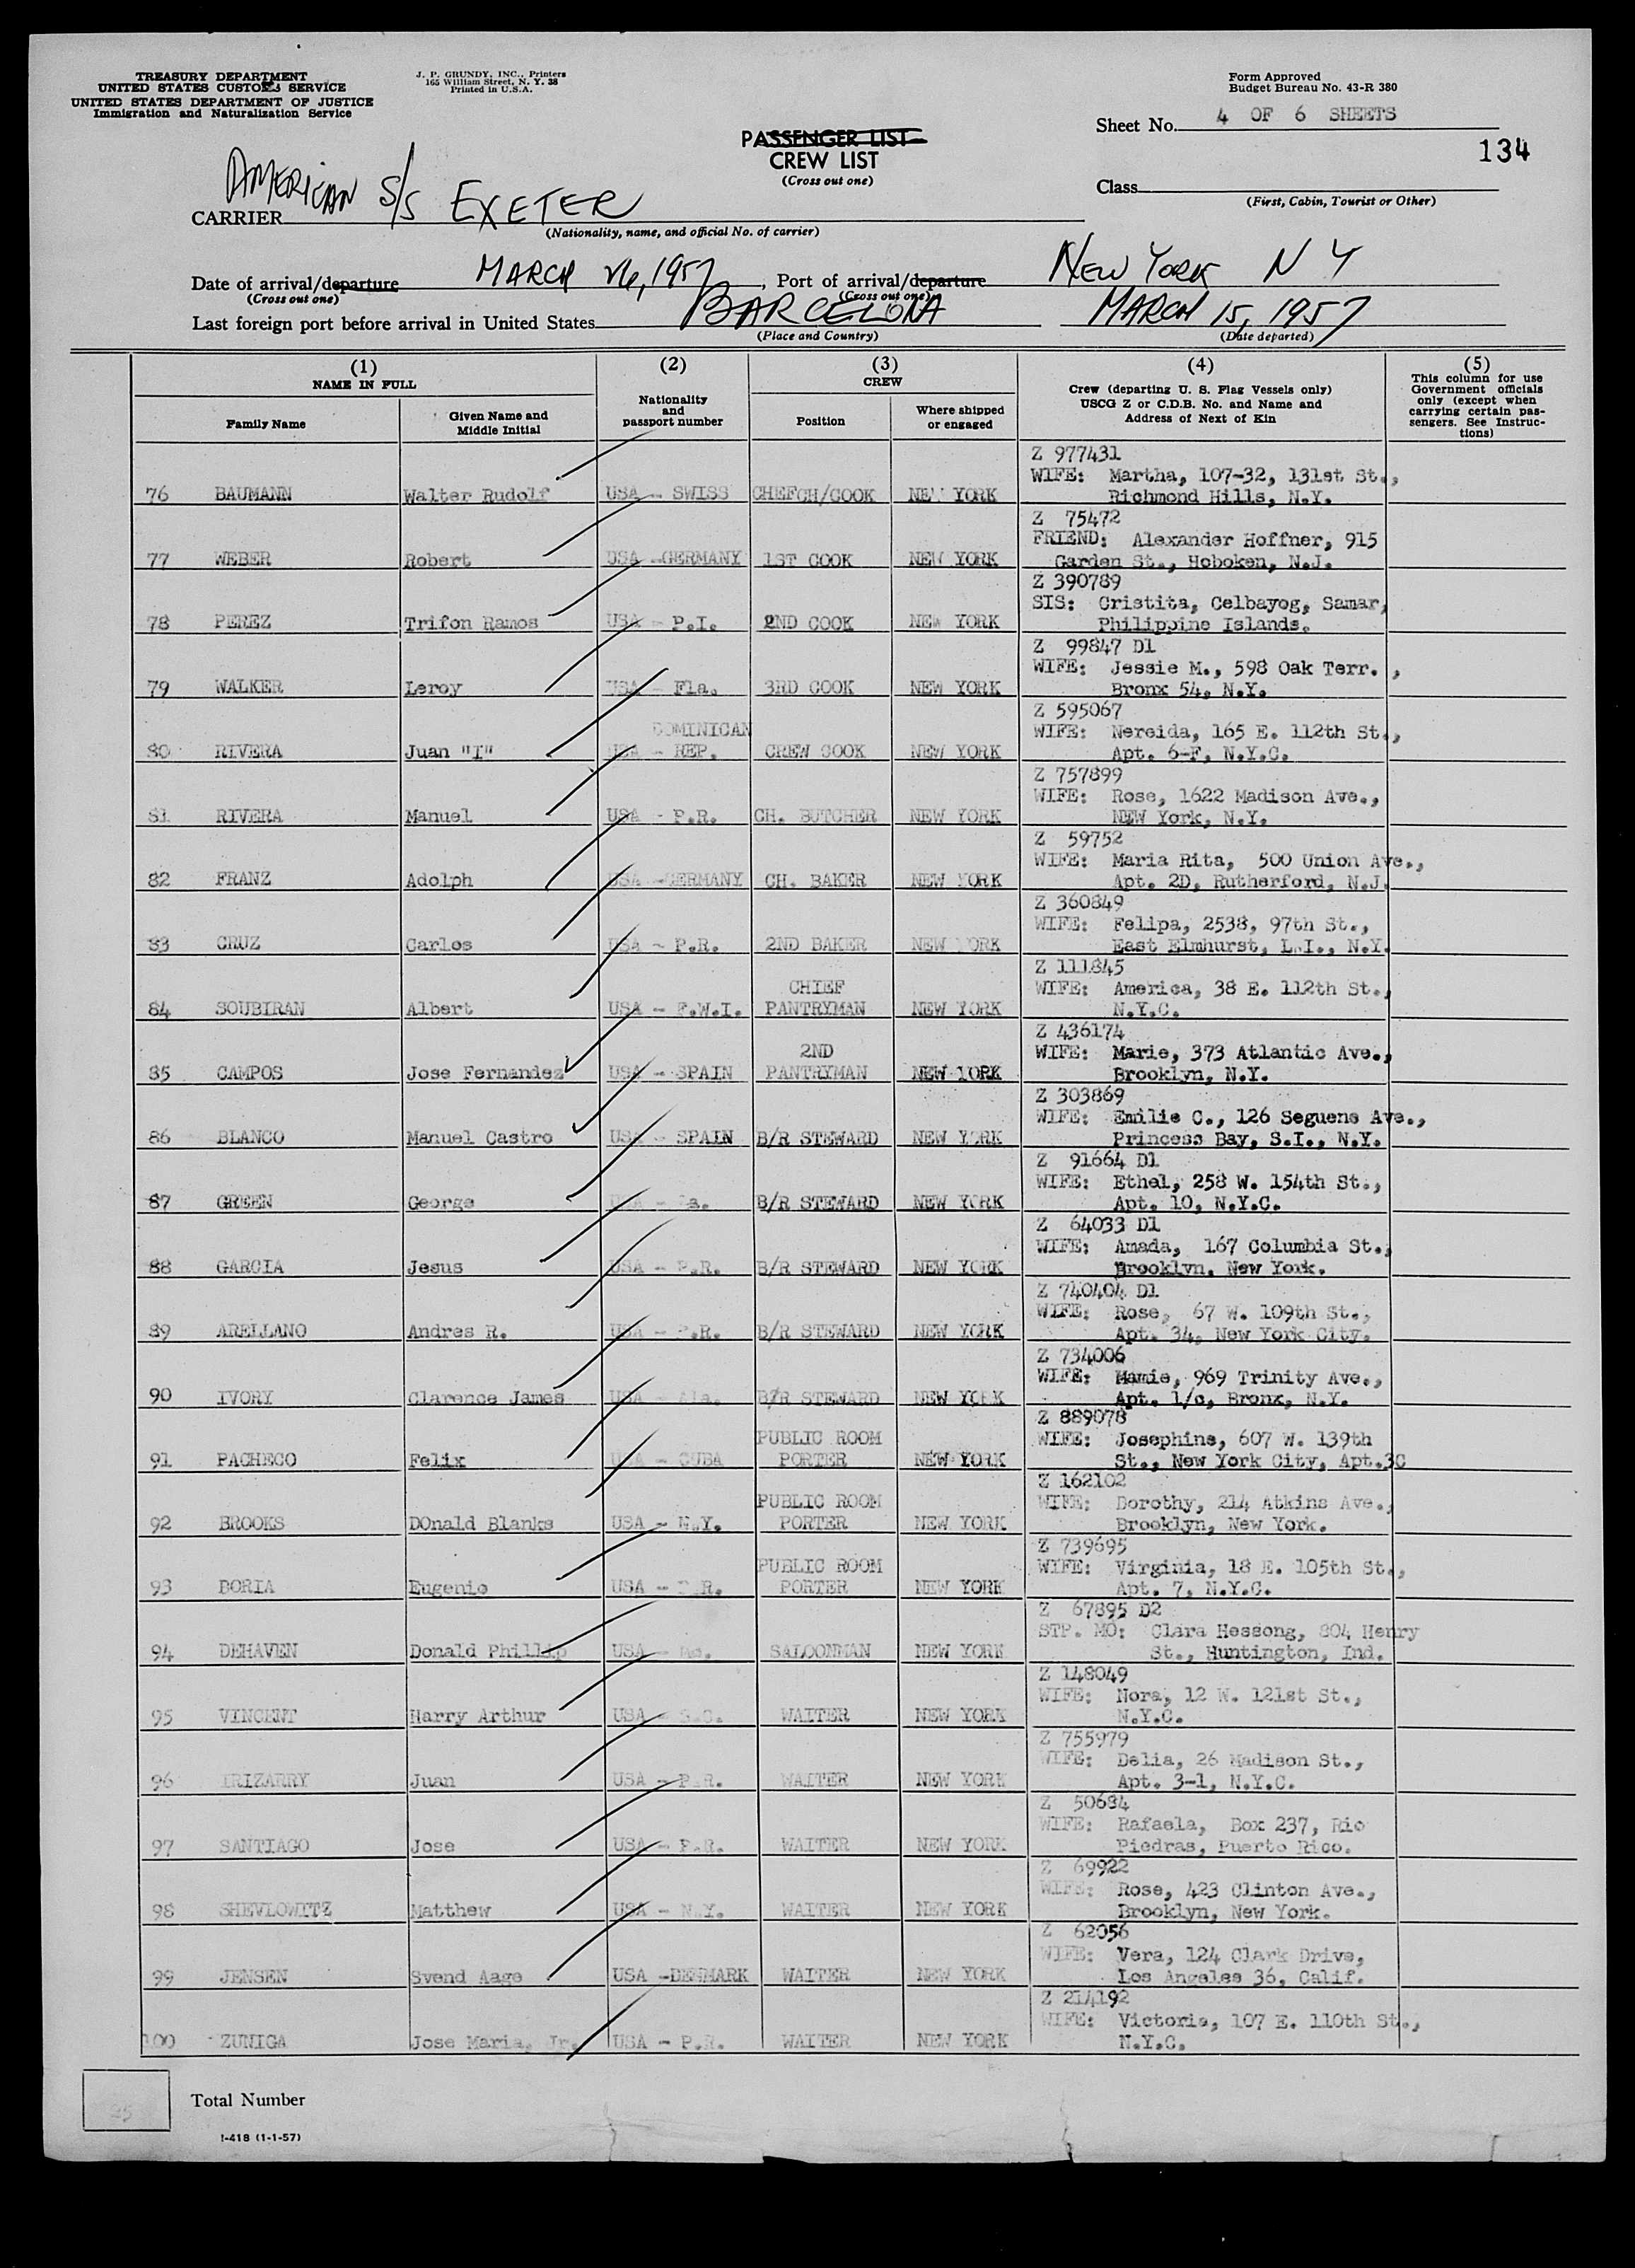 TREASURY DEPARTMENT
UNITED STATES CUSTOMS SERVICE
UNITED STATES DEPARTMENT OF JUSTICE
Immigration and Naturalization Service
J. P. GRUNDY, INC., Printers
165 William Street, N. Y. 38
Printed in U.S.A.
Form Approved
Budget Bureau No. 43-R 380
Sheet No. 4 OF 6 SHEETS
134
PASSENGER LIST
CREW LIST
(Cross out one)
Class
(First, Cabin, Tourist or Other)
CARRIER AMERICAN S/S EXETER
(Nationality, name, and official No. of carrier)
Date of arrival/departure MARCH 26, 1957, Port of arrival/departure NEW YORK N Y
(Cross out one) (Cross out one)
Last foreign port before arrival in United States BARCELONA MARCH 15, 1957
(Place and Country) (Date departed)
(1) (2) (3) (4) (5)
NAME IN FULL
Family Name
Given Name and Middle Initial
Nationality and passport number
CREW
Position
Where shipped or engaged
Crew (departing U. S. Flag Vessels only)
USCG Z or C.D.B. No. and Name and
Address of Next of Kin
This column for use
Government officials
only (except when
carrying certain pas-
sengers. See Instruc-
tions)
Z 977431
WIFE: Martha, 107-32, 131st St.,
76 BAUMANN Walter Rudolf USA - SWISS CHEFCH/COOK NEW YORK Richmond Hills, N.Y.
Z 75472
FRIEND: Alexander Hoffner, 915
77 WEBER Robert USA -GERMANY 1ST COOK NEW YORK Garden St., Hoboken, N.J.
Z 390789
SIS: Cristita, Celbayog, Samar,
78 PEREZ Trifon Ramos USA - P.I. 2ND COOK NEW YORK Philippine Islands.
Z 99847 D1
WIFE: Jessie M., 598 Oak Terr.,
79 WALKER Leroy USA - Fla. 3RD COOK NEW YORK Bronx 54, N.Y.
Z 595067
DOMINICAN WIFE: Nereida, 165 E. 112th St.,
80 RIVERA Juan "I" USA - REP. CREW COOK NEW YORK Apt. 6-F, N.Y.C.
Z 757899
WIFE: Rose, 1622 Madison Ave.,
81 RIVERA Manuel USA - P.R. CH. BUTCHER NEW YORK NEW York, N.Y.
Z 59752
WIFE: Maria Rita, 500 Union Ave.,
82 FRANZ Adolph USA -GERMANY CH. BAKER NEW YORK Apt. 2D, Rutherford, N.J.
Z 360849
WIFE: Felipa, 2538, 97th St.,
83 CRUZ Carlos USA - P.R. 2ND BAKER NEW YORK East Elmhurst, L.I., N.Y.
Z 111845
CHIEF WIFE: America, 38 E. 112th St.,
84 SOUBIRAN Albert USA - F.W.I. PANTRYMAN NEW YORK N.Y.C.
Z 436174
2ND WIFE: Marie, 373 Atlantic Ave.,
85 CAMPOS Jose Fernandez USA - SPAIN PANTRYMAN NEW YORK Brooklyn, N.Y.
Z 303869
WIFE: Emilie C., 126 Seguens Ave.,
86 BLANCO Manuel Castro USA - SPAIN B/R STEWARD NEW YORK Princess Bay, S.I., N.Y.
Z 91664 D1
WIFE: Ethel, 258 W. 154th St.,
87 GREEN George USA - B/R STEWARD NEW YORK Apt. 10, N.Y.C.
Z 64033 D1
WIFE: Amada, 167 Columbia St.,
88 GARCIA Jesus USA - P.R. B/R STEWARD NEW YORK Brooklyn. New York.
Z 740404 D1
WIFE: Rose, 67 W. 109th St.,
89 ARELLANO Andres R. USA - P.R. B/R STEWARD NEW YORK Apt. 34, New York City.
Z 734006
WIFE: Mamie, 969 Trinity Ave.,
90 IVORY Clarence James USA - Ala. B/R STEWARD NEW YORK Apt. 1/c, Bronx, N.Y.
Z 889078
PUBLIC ROOM WIFE: Josephine, 607 W. 139th
91 PACHECO Felix USA - CUBA PORTER NEW YORK St., New York City, Apt.3C
Z 162102
PUBLIC ROOM WIFE: Dorothy, 214 Atkins Ave.,
92 BROOKS DOnald Blanks USA - N.Y. PORTER NEW YORK Brooklyn, New York.
Z 739695
PUBLIC ROOM WIFE: Virginia, 18 E. 105th St.,
93 BORIA Eugenio USA - P.R. PORTER NEW YORK Apt. 7, N.Y.C.
Z 67895 D2
STP. MO: Clara Hessong, 804 Henry
94 DEHAVEN Donald Phillip USA - SALOONMAN NEW YORK St., Huntington, Ind.
Z 148049
WIFE: Nora, 12 W. 121st St.,
95 VINCENT Harry Arthur USA - S.C. WAITER NEW YORK N.Y.C.
Z 755979
WIFE: Delia, 26 Madison St.,
96 IRIZARRY Juan USA - P.R. WAITER NEW YORK Apt. 3-1, N.Y.C.
Z 50684
WIFE: Rafaela, Box 237, Rio
97 SANTIAGO Jose USA - P.R. WAITER NEW YORK Piedras, Puerto Rico.
Z 69922
WIFE: Rose, 423 Clinton Ave.,
98 SHEVLOWITZ Matthew USA - N.Y. WAITER NEW YORK Brooklyn, New York.
Z 62056
WIFE: Vera, 124 Clark Drive,
99 JENSEN Svend Aage USA -DENMARK WAITER NEW YORK Los Angeles 36, Calif.
Z 214192
WIFE: Victoria, 107 E. 110th St.,
100 ZUNIGA Jose Maria, Jr. USA - P.R. WAITER NEW YORK N.Y.C.
25 Total Number
I-418 (1-1-57)